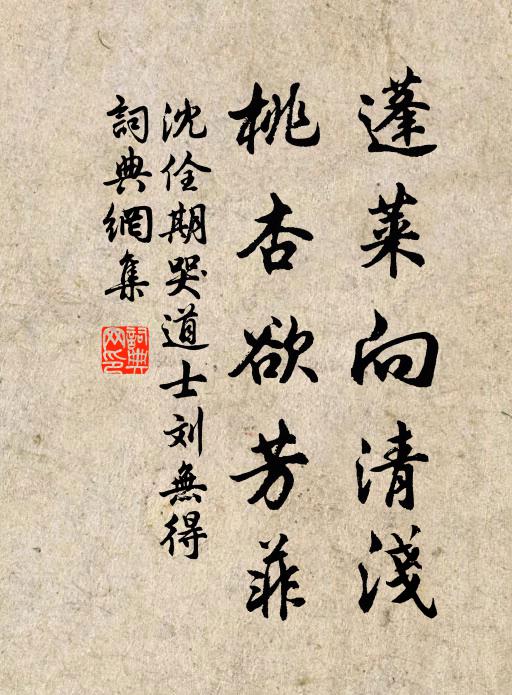 蓬莱向清淺
桃杏欲芳菲
沈佺期哭道士刘無得
詞典網集
詞典網印